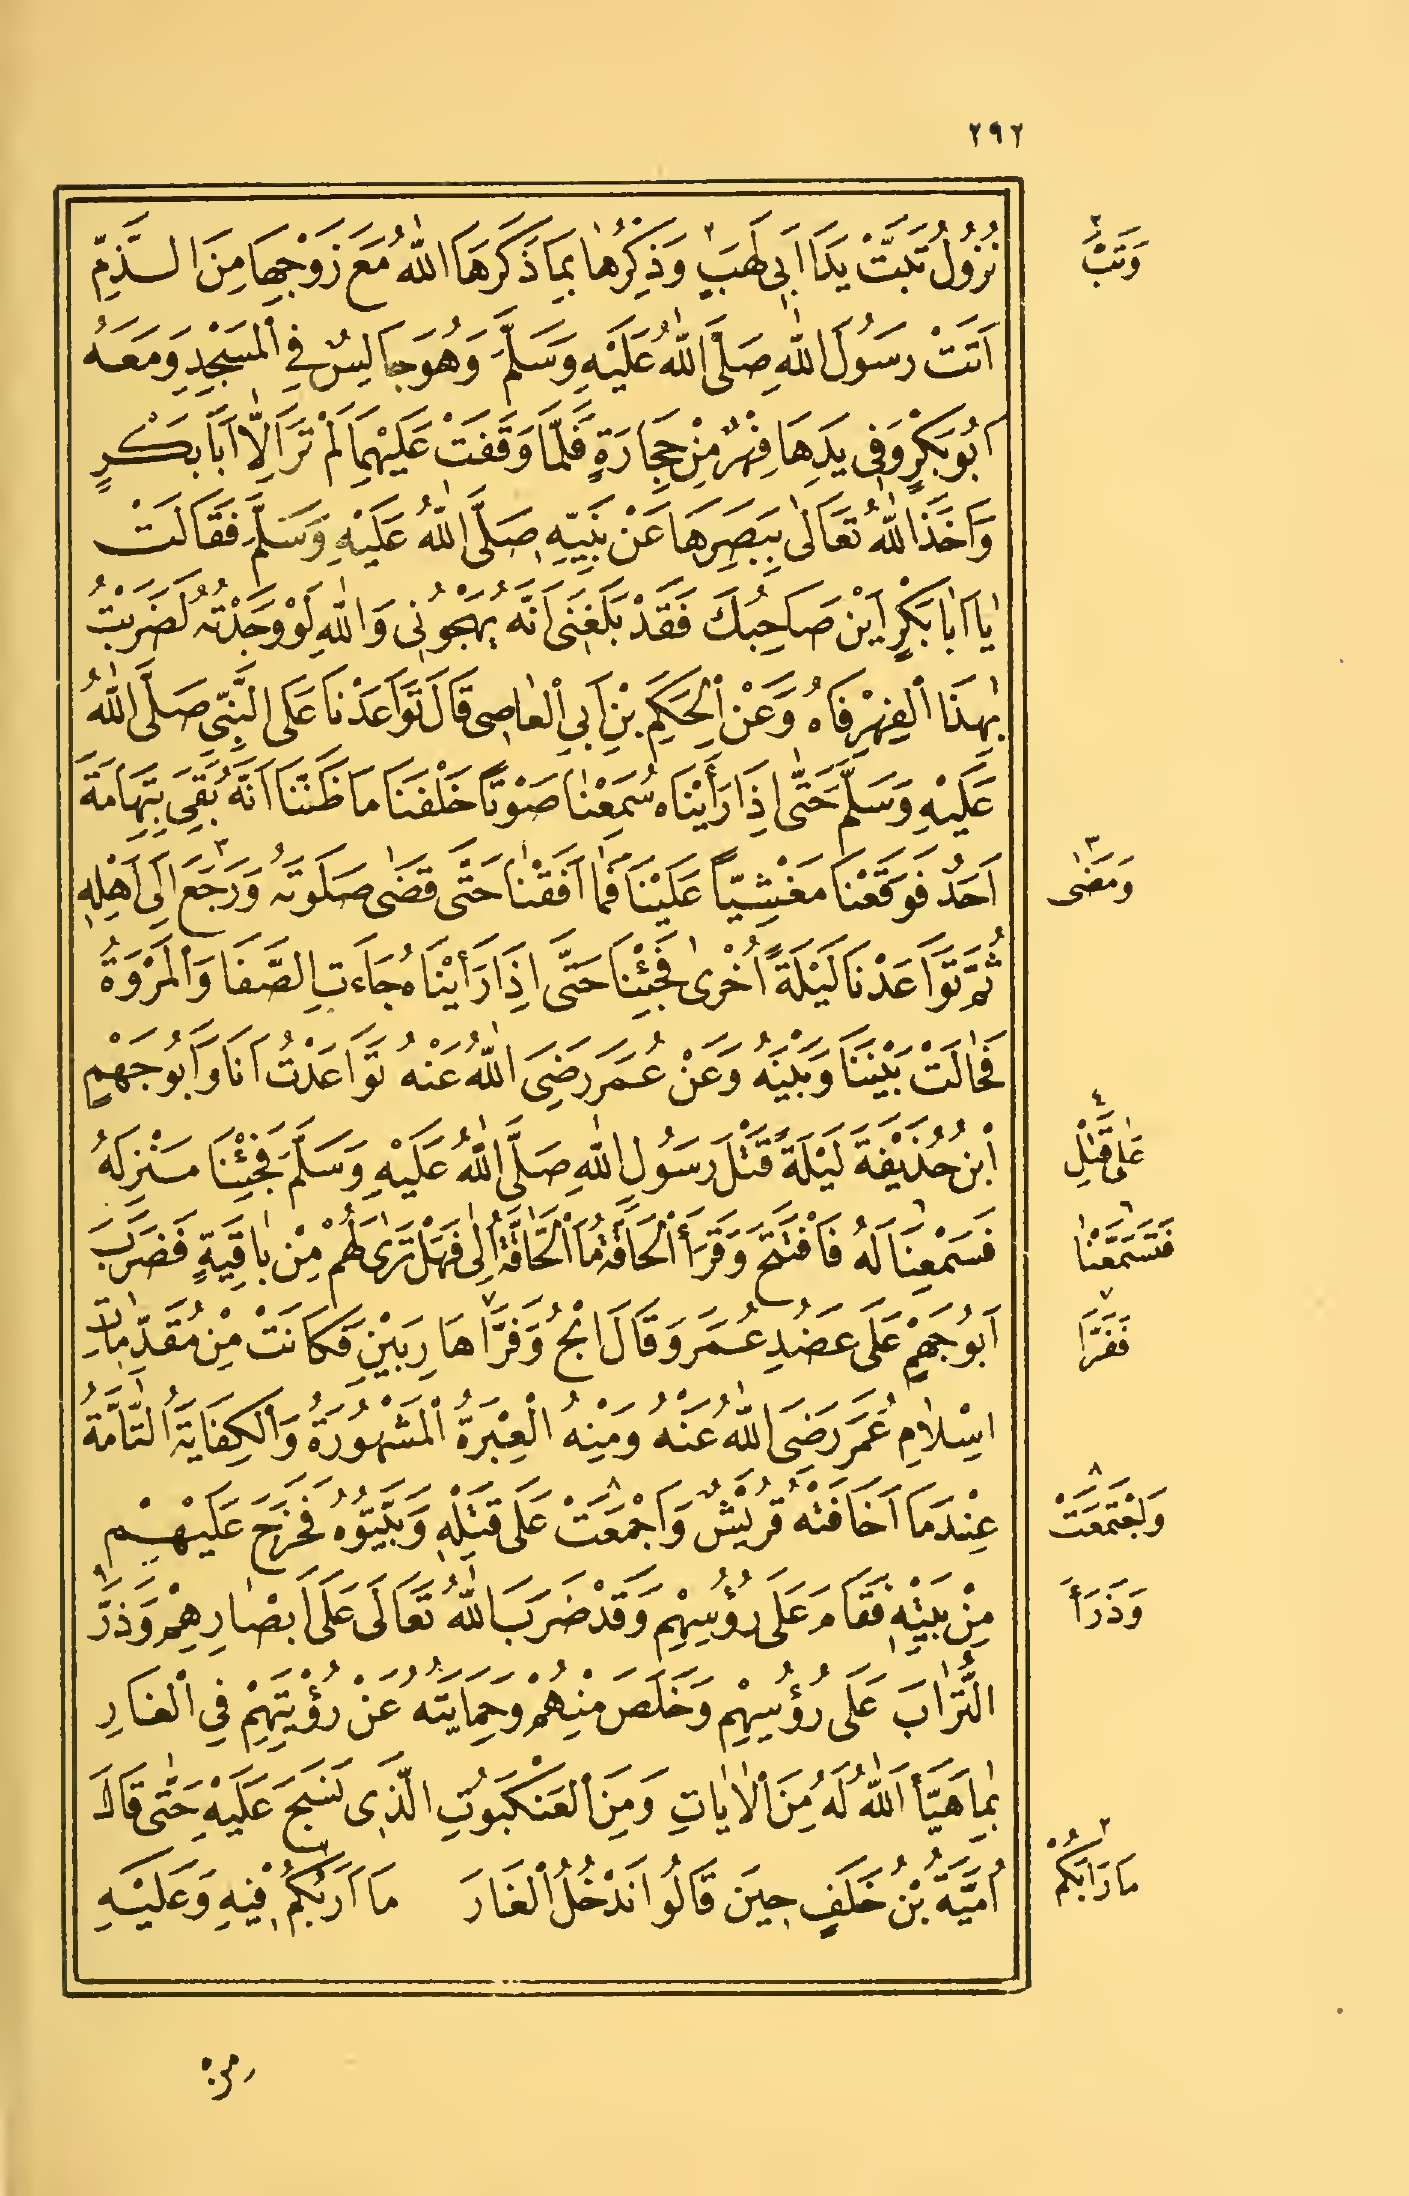 ٢٩٢
نُزُولُ تَبَّتْ يَدَا اَبِي لَهَبٍ ٢ وَذِكْرُهَا بِمَا ذَكَرَهَا اللّٰهُ مَعَ زَوْجِهَا مِنَ الذَّمِّ
٢ وَتَبَّ
اَتَتْ رَسُولَ اللّٰهِ صَلَّى اللّٰهُ عَلَيْهِ وَسَلَّمَ وَهُوَ جَالِسٌ فِي الْمَسْجِدِ وَمَعَهُ
اَبُو بَكْرٍ وَفِي يَدِهَا فِهْرٌ مِنْ حِجَارَةٍ فَلَمَّا وَقَفَتْ عَلَيْهِمَا لَمْ تَرَ اِلَّا اَبَا بَكْرٍ
وَاَخَذَ اللّٰهُ تَعَالٰى بِبَصَرِهَا عَنْ نَبِيِّهِ صَلَّى اللّٰهُ عَلَيْهِ وَسَلَّمَ فَقَالَتْ
يَا اَبَا بَكْرٍ اَيْنَ صَاحِبُكَ فَقَدْ بَلَغَنِي اَنَّهُ يَهْجُونِي وَاللّٰهِ لَوْ وَجَدْتُهُ لَضَرَبْتُ
بِهٰذَا الْفِهْرِ فَاهُ وَعَنْ الْحَكَمِ بْنِ اَبِي الْعَاصِي قَالَ تَوَاعَدْنَا عَلَى النَّبِيِّ صَلَّى اللّٰهُ
عَلَيْهِ وَسَلَّمَ حَتّٰى اِذَا رَأَيْنَاهُ سَمِعْنَا صَوْتًا خَلْفَنَا مَا ظَنَنَّا اَنَّهُ بَقِيَ بِتِهَامَةَ
اَحَدٌ فَوَقَعْنَا مَغْشِيًّا عَلَيْنَا فَمَا اَفَقْنَا حَتّٰى قَضٰى صَلٰوتَهُ ٣ وَرَجَعَ اِلَى اَهْلِهِ
٣ وَمَضٰى
ثُمَّ تَوَاعَدْنَا لَيْلَةً اُخْرٰى فَجِئْنَا حَتّٰى اِذَا رَأَيْنَاهُ جَاءَتِ الصَّفَا وَالْمَرْوَةُ
فَحَالَتْ بَيْنَنَا وَبَيْنَهُ وَعَنْ عُمَرَ رَضِيَ اللّٰهُ عَنْهُ تَوَاعَدْتُ اَنَا وَاَبُو جَهْمِ
ابْنُ حُذَيْفَةَ لَيْلَةً قَتْلَ رَسُولِ اللّٰهِ صَلَّى اللّٰهُ عَلَيْهِ وَسَلَّمَ فَجِئْنَا مَنْزِلَهُ
٤ عَلٰى قَتْلِ
فَسَمِعْنَا لَهُ ٦ فَافْتَتَحَ وَقَرَأَ الْحَاقَّةُ مَا الْحَاقَّةُ اِلٰى فَهَلْ تَرٰى لَهُمْ مِنْ بَاقِيَةٍ فَضَرَبَ
٦ فَتَسَمَّعْنَا
اَبُو جَهْمٍ عَلَى عَضُدِ عُمَرَ وَقَالَ انْجُ وَفَرَّا ٧ هَارِبَيْنِ فَكَانَتْ مِنْ مُقَدِّمَاتِ
٧ فَفَرَّا
اِسْلَامِ عُمَرَ رَضِيَ اللّٰهُ عَنْهُ وَمِنْهُ الْعِبْرَةُ الْمَشْهُورَةُ وَالْكِفَايَةُ التَّامَّةُ
عِنْدَمَا اَخَافَتْهُ قُرَيْشٌ وَاَجْمَعَتْ ٨ عَلَى قَتْلِهِ وَبَيَّتُوهُ فَخَرَجَ عَلَيْهِمْ
٨ وَاجْتَمَعَتْ
مِنْ بَيْتِهِ فَقَامَ عَلَى رُؤُسِهِمْ وَقَدْ ضَرَبَ اللّٰهُ تَعَالَى عَلَى اَبْصَارِهِمْ وَذَرَّ ٩
وَذَرَأَ
التُّرَابَ عَلَى رُؤُسِهِمْ وَخَلَصَ مِنْهُمْ وَحِمَايَتُهُ عَنْ رُؤْيَتِهِمْ فِي الْغَارِ
بِمَا هَيَّأَ اللّٰهُ لَهُ مِنَ الْاٰيَاتِ وَمِنَ الْعَنْكَبُوتِ الَّذِي نَسَجَ عَلَيْهِ حَتّٰى قَالَ
اُمَيَّةُ بْنُ خَلَفٍ حِينَ قَالُوا نَدْخُلُ الْغَارَ مَا اَرَبُكُمْ ٢ فِيهِ وَعَلَيْهِ
٢ مَا رَابَكُمْ